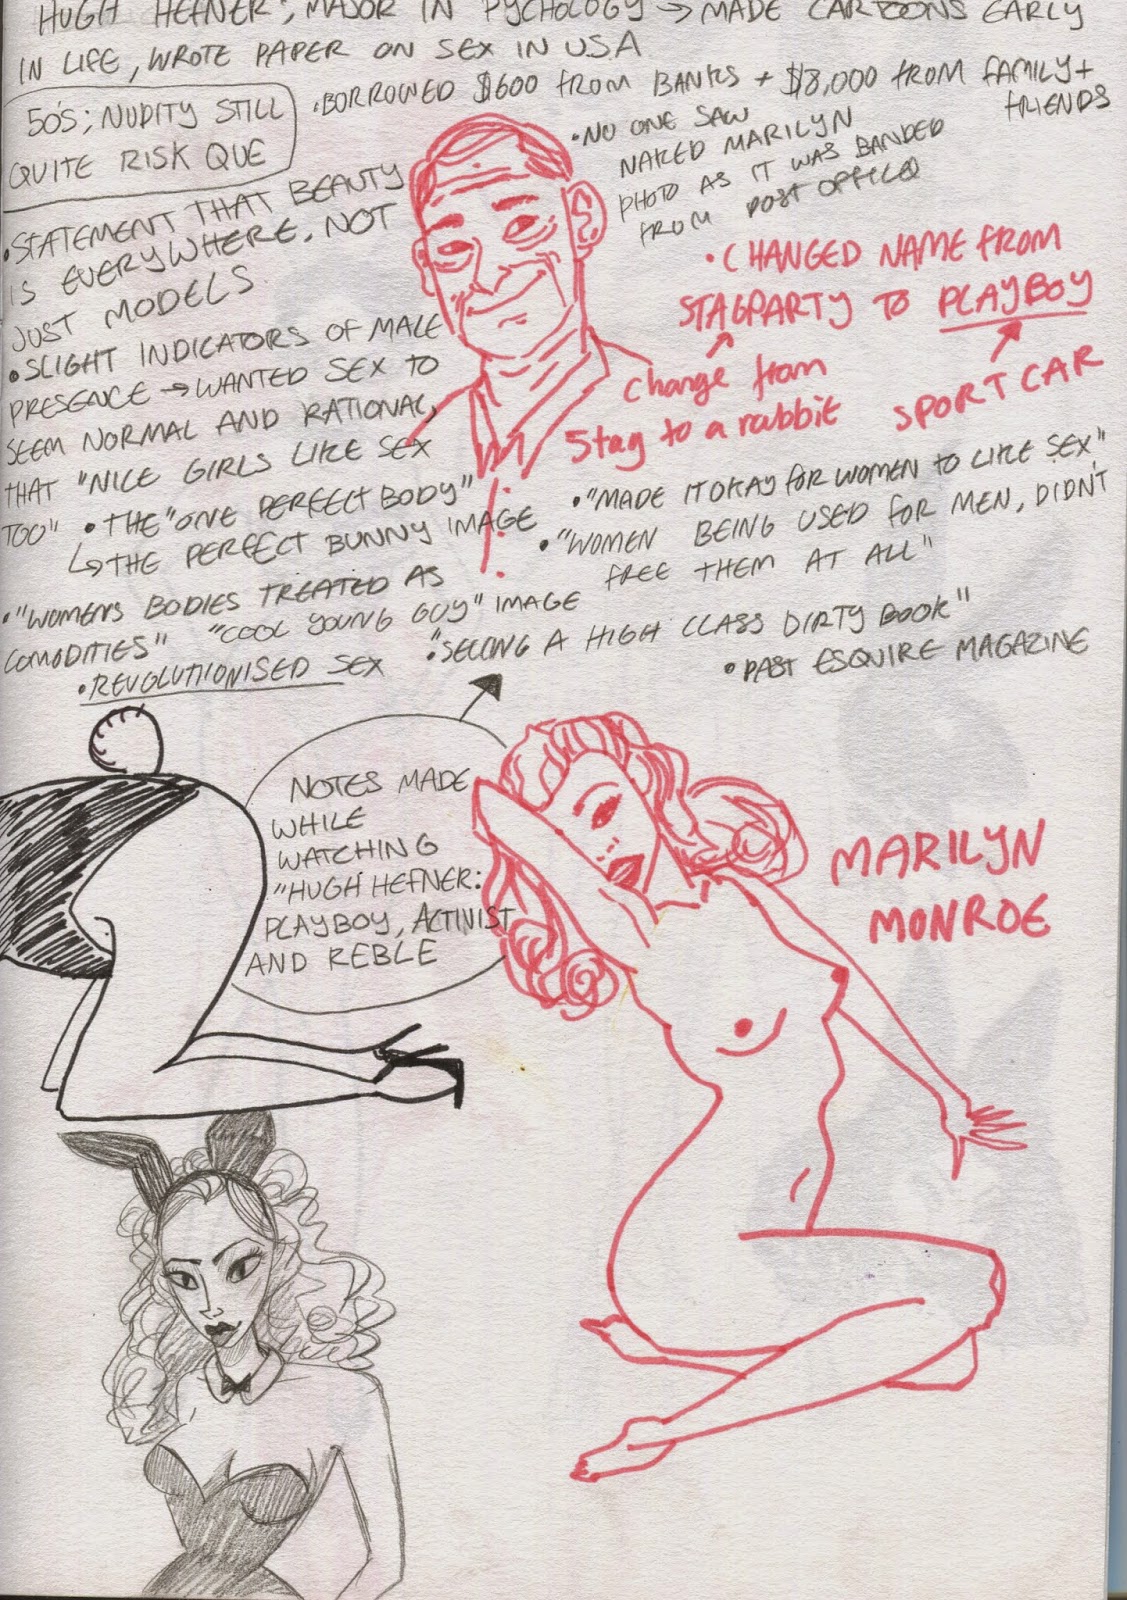 HUGH HEFNER; MAJOR IN PYCHOLOGY → MADE CARTOONS EARLY
IN LIFE, WROTE PAPER ON SEX IN USA
50'S; NUDITY STILL
QUITE RISK QUE
• BORROWED $600 FROM BANKS + $8,000 FROM FAMILY +
FRIENDS
• NO ONE SAW
NAKED MARILYN
PHOTO AS IT WAS BANDED
FROM POST OFFICE
• STATEMENT THAT BEAUTY
IS EVERYWHERE, NOT
JUST MODELS.
• CHANGED NAME FROM
STAGPARTY TO PLAYBOY
change from
stag to a rabbit
SPORT CAR
• SLIGHT INDICATORS OF MALE
PRESENCE → WANTED SEX TO
SEEM NORMAL AND RATIONAL,
THAT "NICE GIRLS LIKE SEX
TOO"
• THE "ONE PERFECT BODY"
↳ THE PERFECT BUNNY IMAGE
• "MADE IT OKAY FOR WOMEN TO LIKE SEX"
• "WOMEN BEING USED FOR MEN, DIDN'T
FREE THEM AT ALL"
• "WOMENS BODIES TREATED AS
COMODITIES"
"COOL YOUNG GUY" IMAGE
• "SELLING A HIGH CLASS DIRTY BOOK"
• REVOLUTIONISED SEX
• PAST ESQUIRE MAGAZINE
NOTES MADE
WHILE
WATCHING
"HUGH HEFNER:
PLAYBOY, ACTIVIST
AND REBLE
MARILYN
MONROE